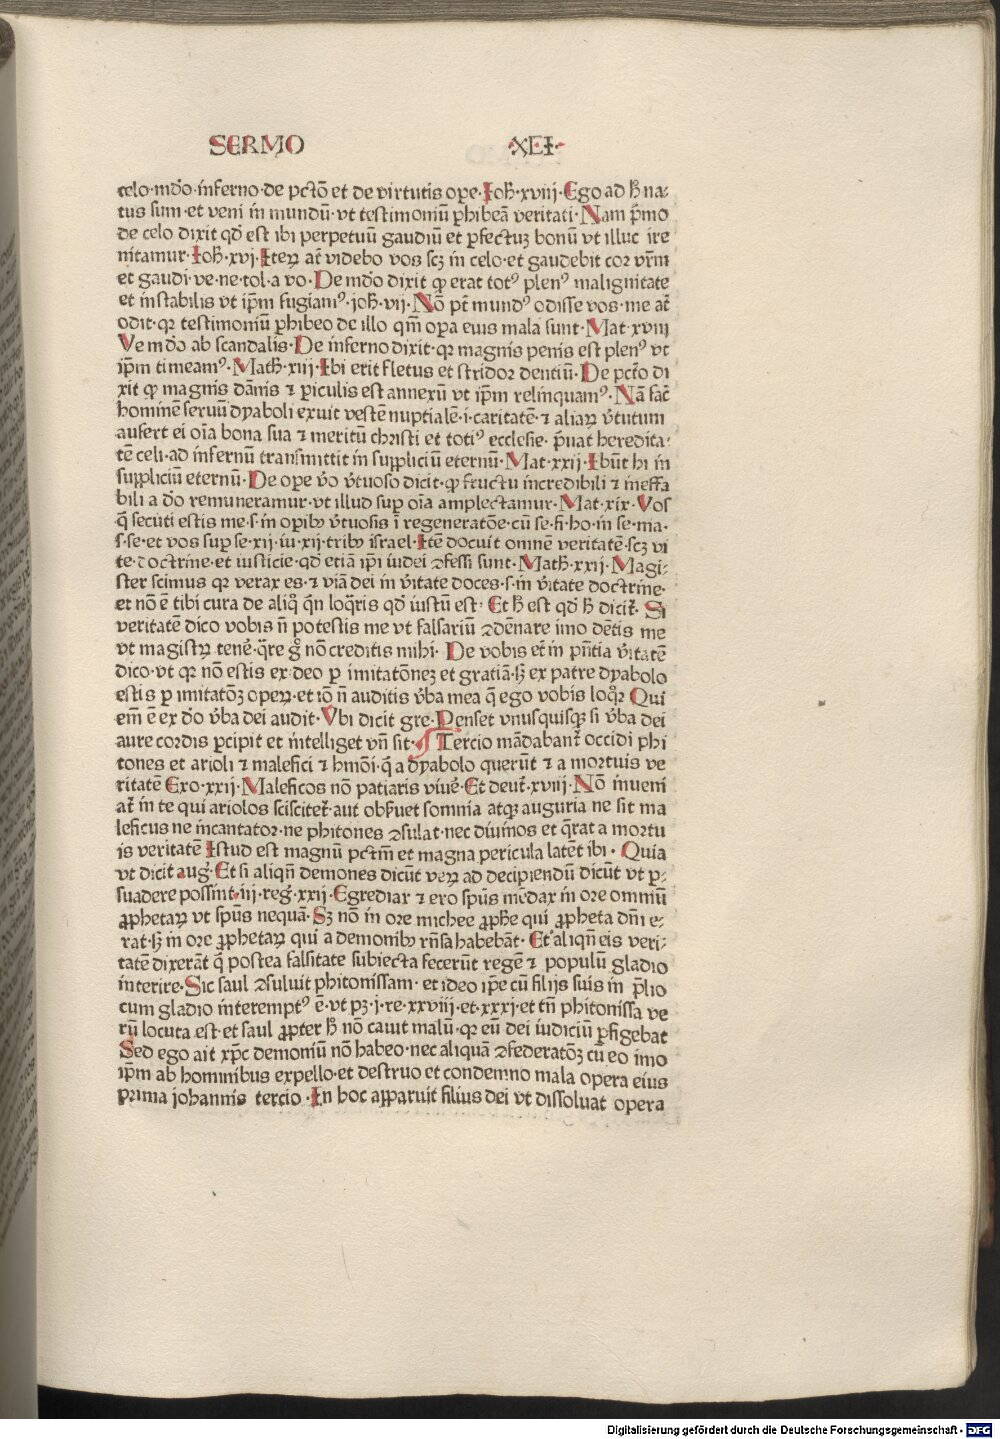 SERMO ·XLI·
celo·mdō·inferno·de pctō et de virtutis ope·Joh̄·xviij·Ego ad h̄ na-
tus sum·et veni in mundū·vt testimoniū ꝑhibeā veritati·Nam p̄mo
de celo dixit qd̄ est ibi perpetuū gaudiū et ꝑfectuꝫ bonū vt illuc ire
nitamur·Joh̄·xvj·Iteꝝ at̄ videbo vos scꝫ in celo·et gaudebit cor vr̄m
et gaudi·ve·ne·tol·a vo·De mdō dixit ꝙ erat totꝰ plenꝰ malignitate
et instabilis vt ip̄m fugiamꝰ·joh̄·vij·Nō pt̄ mundꝰ odisse vos·me at̄
odit·qꝛ testimoniū ꝑhibeo de illo qm̄ oꝑa eius mala sunt·Mat·xviij
Ve mdō ab scandalis·De inferno dixit·qꝛ magnis penis est plenꝰ vt
ip̄m timeamꝰ·Math̄·xiij·Ibi erit fletus et stridoꝛ dentiū·De pctō di
xit ꝙ magnis dān̄is ⁊ ꝑiculis est annexū vt ip̄m relinquamꝰ·Nā fac̄
hominē seruū dyaboli exuit vestē nuptialē·i·caritatē·⁊ aliaꝝ v̄tutum
aufert ei oīa bona sua ⁊ meritū christi et totiꝰ ecclesie·p̄uat heredita-
tē celi·ad infernū transmittit in suppliciū eternū·Mat·xxij·Ibūt hi in
suppliciū eternū·De ope v̄o v̄tuoso dicit·ꝙ fructu incredibili ⁊ ineffa
bili a dō remuneramur·vt illud suꝑ oīa amplectamur·Mat·xix·Vos
q̄ secuti estis me·s·in oꝑibꝫ v̄tuosis ī regeneratōe·cū se·fi·ho·in se·ma·
s·se·et vos suꝑ se·xij·iu·xij·tribꝫ israel·Itē docuit omnē veritatē·scꝫ vi
te·doctrine·et iusticie·qd̄ etiā ip̄i iudei ꝯfessi sunt·Math̄·xxij·Magi-
ster scimus qꝛ verax es·⁊ viā dei in v̄itate doces·s·in v̄itate doctrine·
et nō ē tibi cura de aliq̊ q̄n loq̄ris qd̄ iustū est· Et h̄ est qd̄ h̄ dicit̄· Si
veritatē dico vobis n̄ potestis me vt falsariū ꝯdēnare imo dētis me
vt magistꝝ tenē·q̄re g̊ nō creditis mihi· De vobis et̄ in pn̄tia v̄itatē
dico·vt qꝛ nō estis ex deo ꝑ imitatōneꝫ et gratiā·sꝫ ex patre dyabolo
estis ꝑ imitatōꝫ opeꝝ·et iō n̄ auditis v̄ba mea q̄ ego vobis loq̊r Qui
em̄ ē ex dō v̄ba dei audit·Vbi dicit gre·Penset vnusquisqꝫ si v̄ba dei
aure cordis ꝑcipit et intelliget vn̄ sit·¶ Tercio mādabant̄ occidi phi
tones et arioli ⁊ malefici ⁊ hmōi·q̄ a dyabolo querūt ⁊ a mortuis ve
ritatē Exo·xxij·Maleficos nō patiaris viuē·Et deut̄·xviij·Nō inueni
at̄ in te qui ariolos sciscitet̄·aut obs̄uet somnia atqꝫ auguria ne sit ma
leficus ne incantator·ne phitones ꝯsulat·nec diuinos et q̄rat a mortu
is veritatē Istud est magnū pctm̄ et magna pericula latēt ibi· Quia
vt dicit auḡ·Et si aliqn̄ demones dicūt veꝝ ad decipiendū dicūt vt ꝑ-
suadere possint·iij·reḡ·xxij·Egrediar ⁊ ero spūs mēdax in ore omniū
ꝓphetaꝝ vt spūs nequā·Sꝫ nō in ore michee ꝓphe qui ꝓpheta dn̄i e-
rat·sꝫ in ore ꝓphetaꝝ qui a demonibꝫ rn̄sa habebāt· Et aliqn̄ eis veri-
tatē dixerāt q̄ postea falsitate subiecta fecerūt regē ⁊ populū gladio
interire·Sic saul ꝯsuluit phitonissam·et ideo ip̄e cū filijs suis in p̄lio
cum gladio interemptꝰ ē·vt pꝫ·j·re·xxviij·et·xxxj·et tn̄ phitonissa ve
rū locuta est·et saul ꝓpter h̄ nō cauit malū·qꝛ eū dei iudiciū ꝑfigebat
Sed ego ait xp̄c demoniū nō habeo·nec aliquā ꝯfederatōꝫ cū eo imo
ip̄m ab hominibus expello·et destruo et condemno mala opera eius
prima johannis tercio·In hoc apparuit filius dei vt dissoluat opera
Digitalisierung gefördert durch die Deutsche Forschungsgemeinschaft - DFG